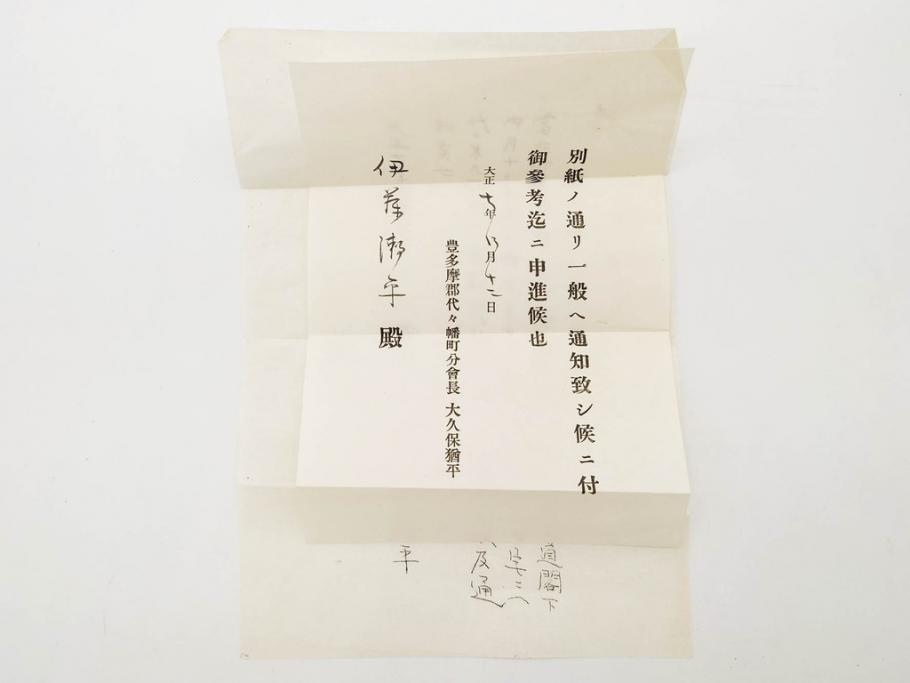 別紙ノ通リ一般ヘ通知致シ候ニ付
御參考迄ニ申進候也
大正十年 月十二日
豊多摩郡代々幡町分會長 大久保猶平
伊藤 平殿
道閣下
及通
平